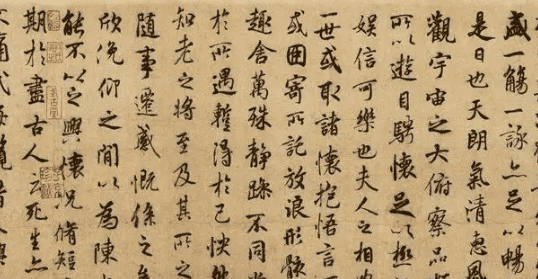 盛一觴一詠亦足以暢
是日也天朗氣清惠風
觀宇宙之大俯察品
所以遊目騁懷足以極
娛信可樂也夫人之相
一世或取諸懷抱悟言
或因寄所託放浪形骸
趣舍萬殊靜躁不同
於所遇蹔得於己快然
知老之將至及其所之
隨事遷感慨係之矣
欣俛仰之間以為陳
能不以之興懷況脩短
期於盡古人云死生亦
痛哉每覽昔人興